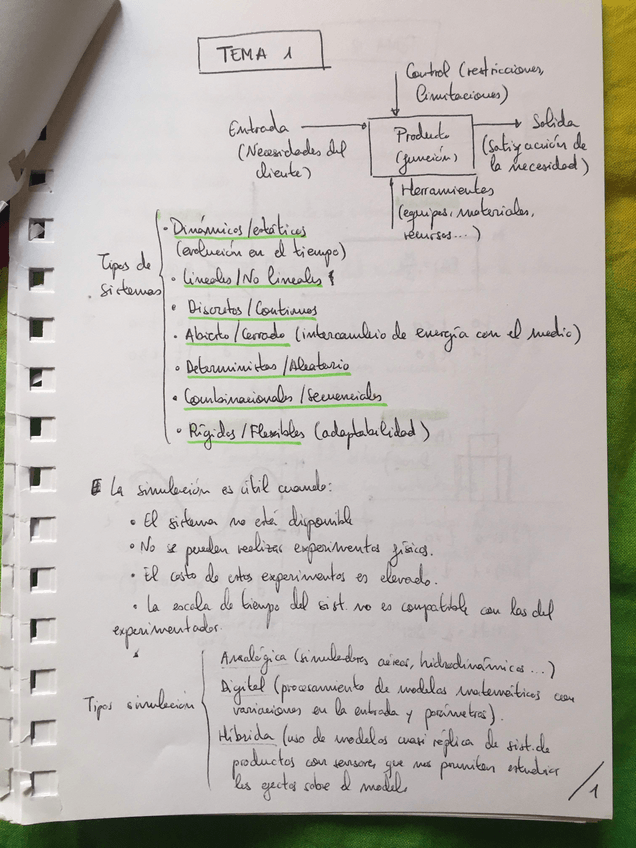 TEMA 1
Control (restricciones,
limitaciones)
Entrada
(Necesidades del
cliente)
Producto
(función)
Salida
(satisfacción de
la necesidad)
Herramientas
(equipos, materiales,
recursos...)
Tipos de
sistemas
• Dinámicos/estáticos
(evolución en el tiempo)
• Lineales/No lineales
• Discretos/Continuos
• Abierto/Cerrado (intercambio de energía con el medio)
• Deterministas/Aleatorio
• Combinacionales/Secuenciales
• Rígidos/Flexibles (adaptabilidad)
La simulación es útil cuando:
• El sistema no está disponible
• No se pueden realizar experimentos físicos.
• El costo de estos experimentos es elevado.
• La escala de tiempo del sist. no es compatible con las del
experimentador.
Tipos simulación
Analógica (simuladores aéreos, hidrodinámicos...)
Digital (procesamiento de modelos matemáticos con
variaciones en la entrada y parámetros).
Híbrida (uso de modelos cuasi réplica de sist. de
productos con sensores que nos permiten estudiar
los efectos sobre el modelo
1